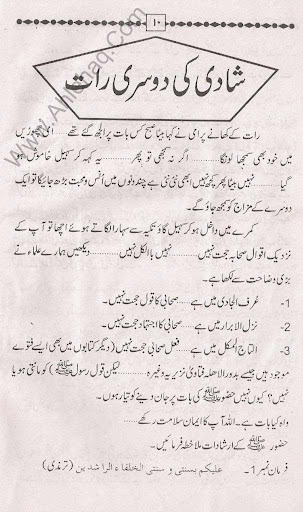 ۱۰
شادی کی دوسری رات
رات کے کھانے پر امی نے کہا بیٹا صبح کس بات پر الجھ گئے تھے ........ امی چھوڑیں
میں خود بھی سمجھا لونگا ........ اگر نہ سمجھی تو پھر ........ یہ کہہ کر سہیل خاموش ہو
گیا ........ نہیں بیٹا پھر کچھ نہیں ابھی نئی نئی ہے چند دنوں میں اُنس و محبت بڑھ جائیگا تو ایک
دوسرے کے مزاج کو سمجھ جاؤ گے۔
کمرے میں داخل ہو کر سہیل گاؤ تکیہ سے سہارا لگاتے ہوئے اچھا تو آپ کے
نزدیک اقوال صحابہ حجت نہیں ........ نہیں بالکل نہیں ........ دیکھیں ہمارے علماء نے
بڑی وضاحت سے لکھا ہے۔
1- عرف الجادی میں ہے ........ صحابی کا قول حجت نہیں۔
2- نزل الابرار میں ہے ........ صحابی کا اجتہاد حجت نہیں۔
3- التاج المکلل میں ہے ........ فعل صحابی حجت نہیں (دیگر کتابوں میں بھی ایسے فتوے
موجود ہیں جیسے بدور الاھلہ فتاوی نذیریہ وغیرہ ........ لیکن قول رسول ﷺ) کو مانتی ہو یا
نہیں؟ کیوں نہیں حضور ﷺ کی بات پر جان دینے کو تیار ہوں۔
واہ کیا بات ہے۔ اللہ آپ کا ایمان سلامت رکھے ........
حضور ﷺ کے ارشادات ملاحظہ فرمائیں۔
فرمان نمبر 1- علیکم بسنتی و سنتی الخلفاء الراشدین (ترمذی)
www.AhleHaq.Com